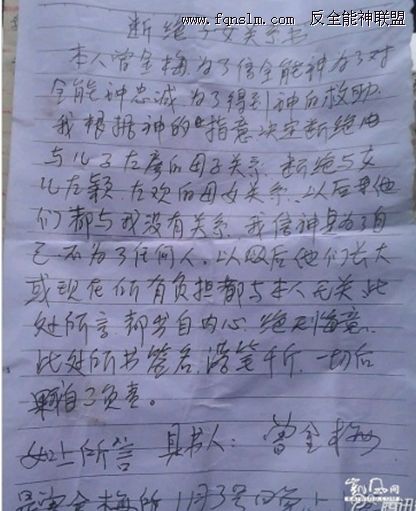 www.fqnslm.com 反全能神联盟
断绝子女关系书
本人曾金梅为了信全能神为了对
全能神忠诚为了得到神的救助
我根据神的“指意决定断绝
与儿子左彦的母子关系.断绝与女
儿左颖.左欢的母女关系.以后
们都与我没有关系.我信神是为了自
己不为了任何人.以后他们长大
或现在所有负担都与本人无关.此
处所言都出自内心.绝不悔意.
此处所书签名.落笔千斤.一切后
果自己负责。
如上所言 具书人:曾金梅
腾讯